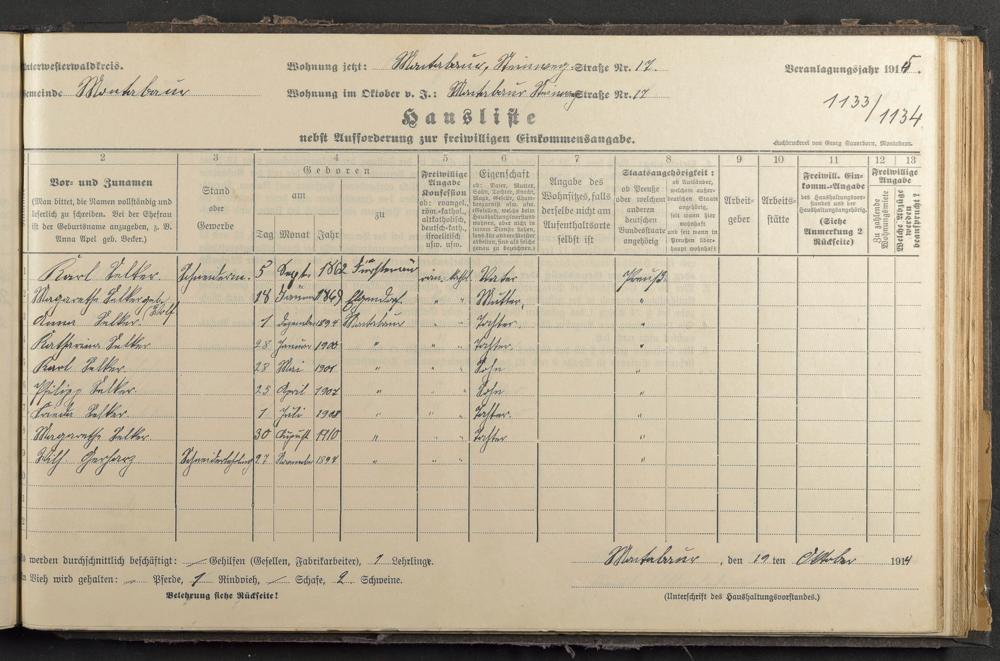 nterwesterwaldkreis.
Wohnung jetzt: Montabaur, Steinweg Straße Nr. 17.
Veranlagungsjahr 1915.
emeinde Montabaur
Wohnung im Oktober v. J.: Montabaur Steinweg Straße Nr. 17
1133/1134
Hausliste
nebst Aufforderung zur freiwilligen Einkommensangabe.
Buchdruckerei von Georg Sauerborn, Montabaur.
2 3 4 5 6 7 8 9 10 11 12 13
Vor- und Zunamen
(Man bittet, die Namen vollständig und
leserlich zu schreiben. Bei der Ehefrau
ist der Geburtsname anzugeben, z. B.
Anna Apel geb. Becker.)
Stand
oder
Gewerbe
Geboren
am
Tag Monat Jahr
zu
Freiwillige
Angabe
Konfession
ob: evangel.,
röm.-kathol.,
altkatholisch,
deutsch-kath.,
israelitisch
usw. usw.
Eigenschaft
ob: Vater, Mutter,
Sohn, Tochter, Knecht,
Magd, Geselle,
Angabe des
Wohnsitzes, falls
derselbe nicht am
Aufenthaltsorte
selbst ist
Staatsangehörigkeit:
ob Preuße
oder welchem
anderen
deutschen
Bundesstaate
angehörig
ob Ausländer,
welchem außer-
deutschen Staat
angehörig,
seit wann hier
wohnhaft
und seit wann in
Preußen über-
haupt wohnhaft
Arbeit-
geber
Arbeits-
stätte
Freiwill. Ein-
komm.-Angabe
des Haushaltungsvor-
standes und der
Haushaltungsangehörig.
(Siehe
Anmerkung 2
Rückseite)
Freiwillige
Angabe
Zu zahlende
Wohnungsmiete
Welche Abzüge
werden
beansprucht?
Karl Selker Schneiderm. 5 Sept. 1862 Fürstenau röm. kath. Vater Preuß.
Magarethe Selker geb. Wolf 18 1869 Elgendorf " " Mutter "
Anna Selker 1 Dezember 1894 Montabaur " " Tochter "
Katharina Selker 28 Januar 1900 " " " Tochter "
Karl Selker 28 Mai " " " Sohn "
Philipp Selker 25 April 1907 " " " Sohn "
Frieda Selker 1 Juli 1908 " " " Tochter "
Magarethe Selker 30 August 1910 " " " Tochter "
Wilh. Gerharz Schneiderlehrling 27 November " " " "
werden durchschnittlich beschäftigt: — Gehilfen (Gesellen, Fabrikarbeiter), 1 Lehrlinge.
Vieh wird gehalten: — Pferde, 1 Rindvieh, — Schafe, 2 Schweine.
Belehrung siehe Rückseite!
Montabaur, den 19 ten Oktober 1914
(Unterschrift des Haushaltungsvorstandes.)